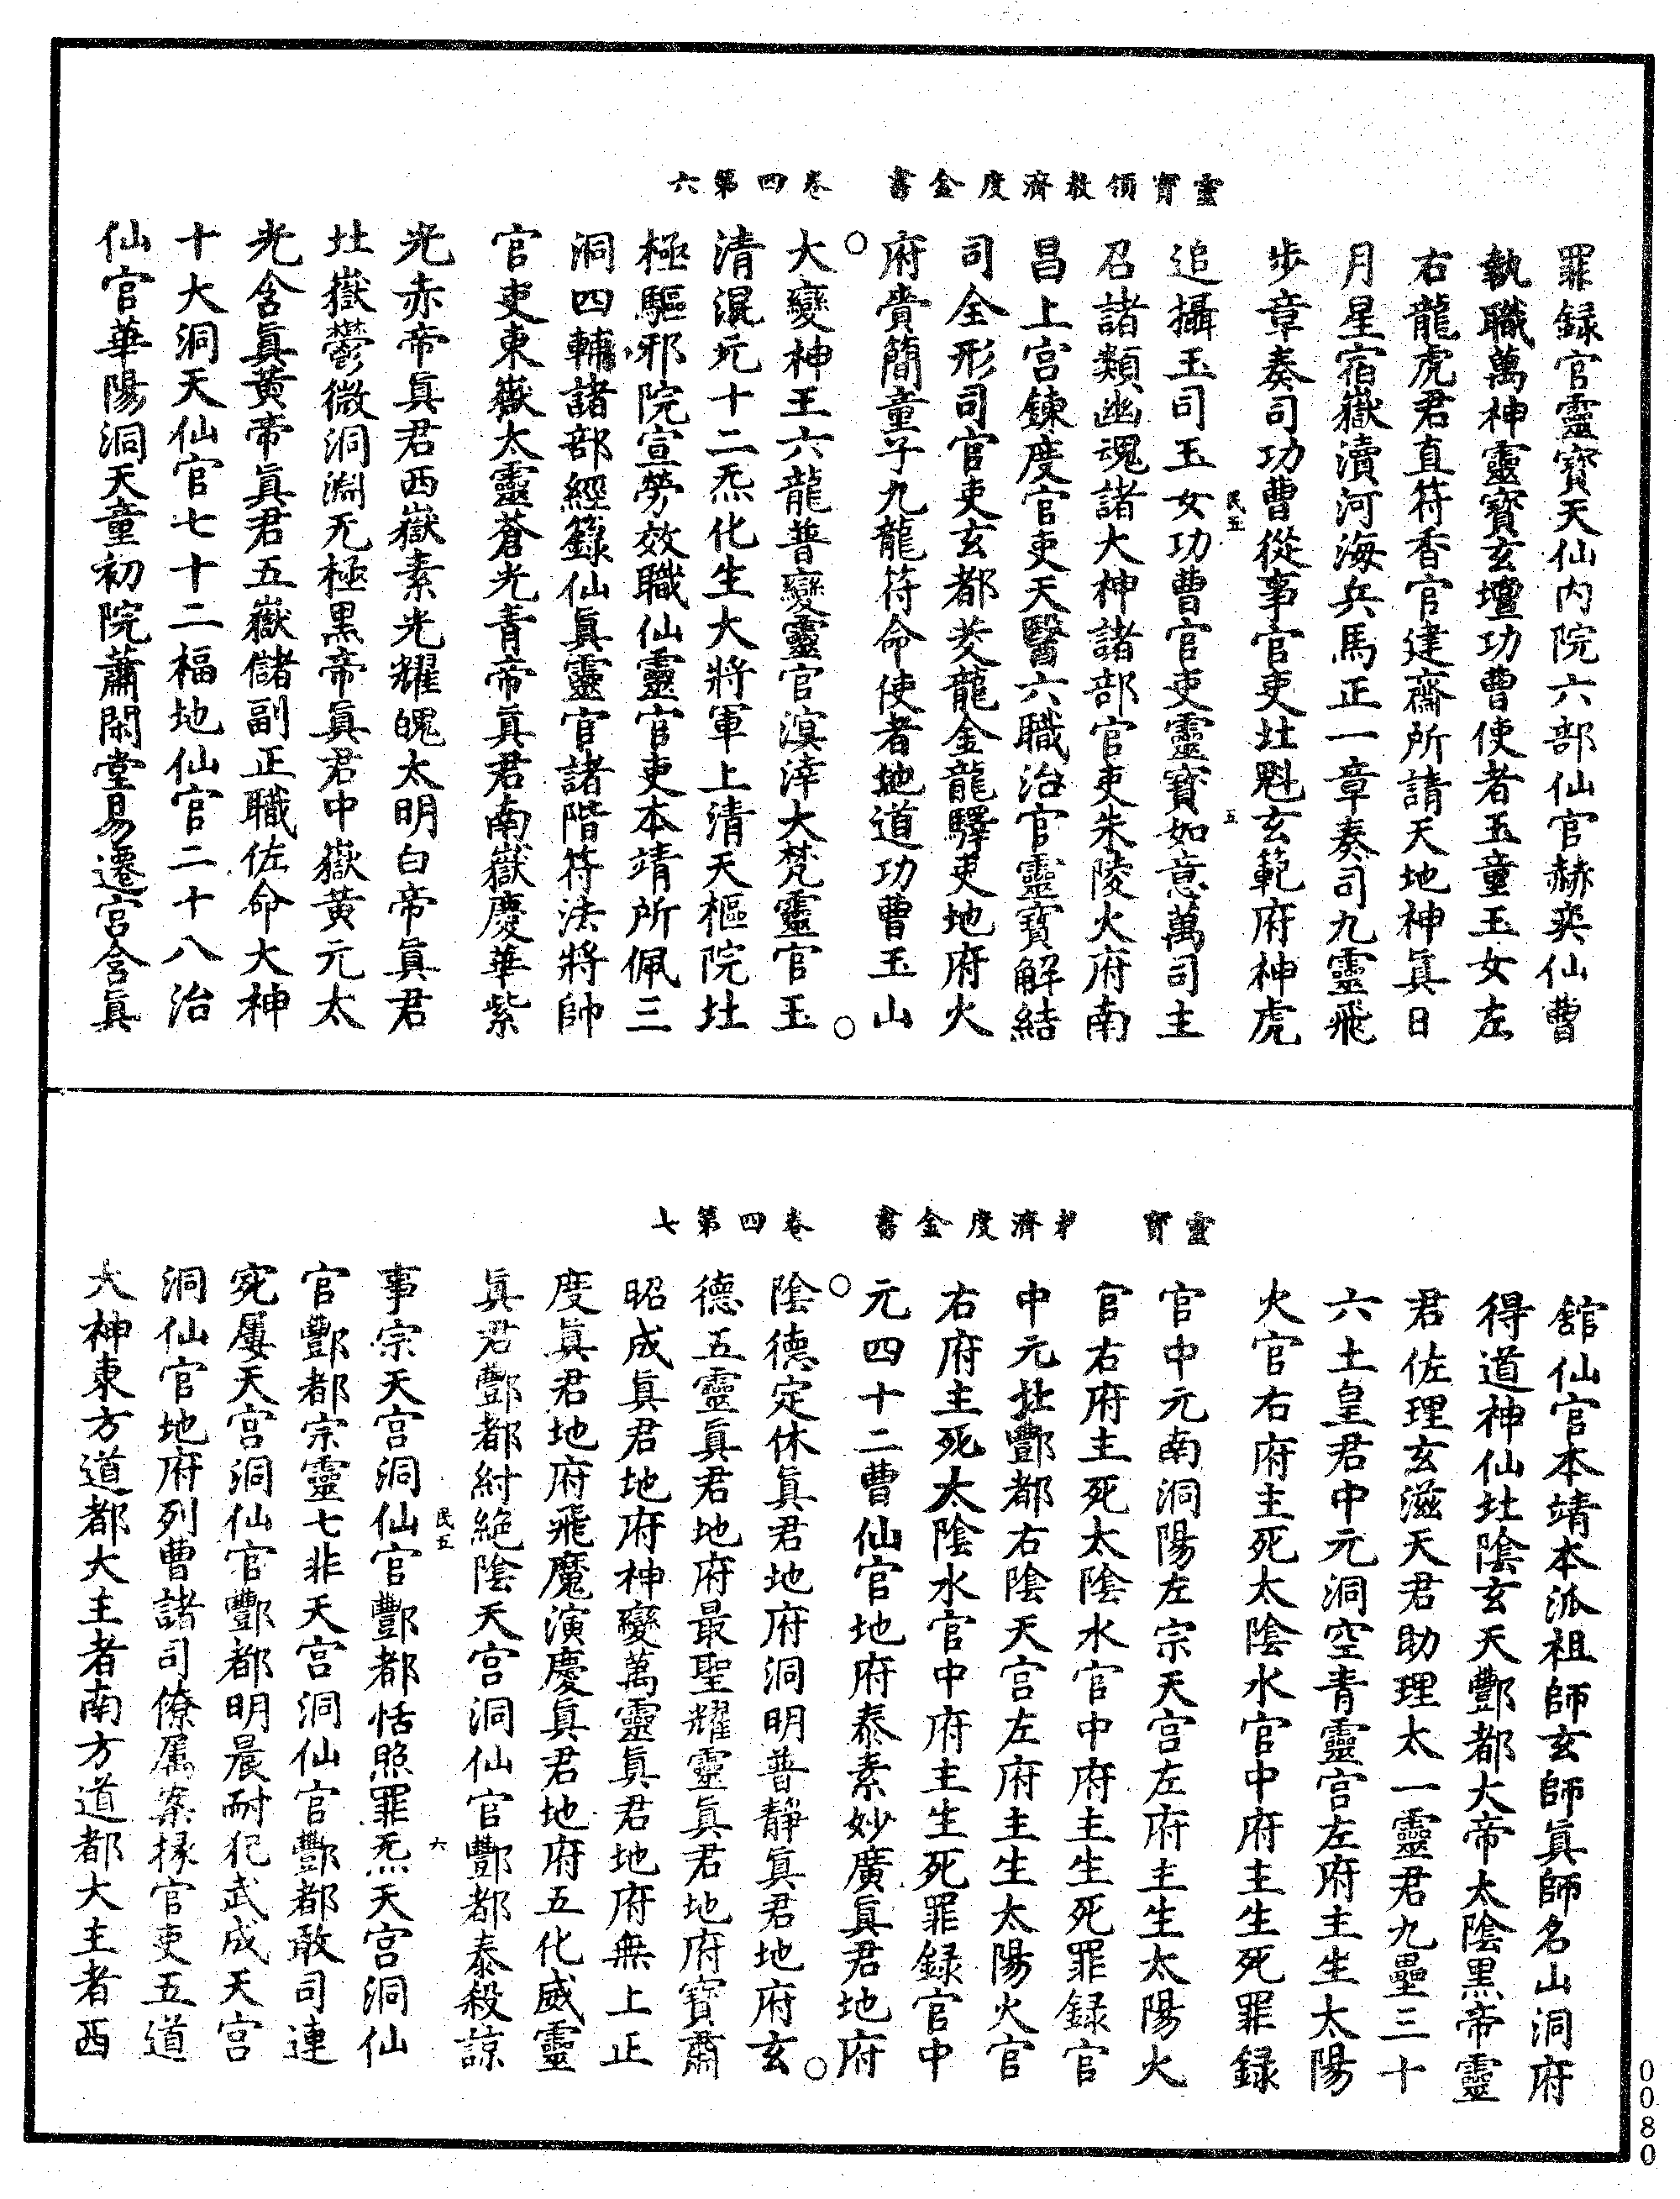 靈寶領教濟度金書　卷四第六
罪録官靈寶天仙内院六部仙官赫奕仙曹
執職萬神靈寶玄壇功曹使者玉童玉女左
右龍虎君直符香官建齋所請天地神眞日
月星宿嶽瀆河海兵馬正一章奏司九靈飛
步章奏司功曹從事官吏北魁玄範府神虎
民五　五
追攝玉司玉女功曹官吏靈寶如意萬司主
召諸類幽魂諸大神諸部官吏朱陵火府南
昌上宮鍊度官吏天醫六職治官靈寶解結
司全形司官吏玄都茭龍金龍驛吏地府火
府賫簡童子九龍符命使者地道功曹玉山
大變神王六龍普變靈官溟涬大梵靈官玉
清混元十二炁化生大將軍上清天樞院北
極驅邪院宣勞效職仙靈官吏本靖所佩三
洞四輔諸部經籙仙眞靈官諸階符法將帥
官吏東嶽太靈蒼光青帝眞君南嶽慶華紫
光赤帝眞君西嶽素光耀魄太明白帝眞君
北嶽鬱微洞淵无極黒帝眞君中嶽黄元太
光含眞黄帝眞君五嶽儲副正職佐命大神
十大洞天仙官七十二福地仙官二十八治
仙官華陽洞天童初院蕭閑堂易遷宮含眞
靈寶　濟度金書　卷四第七
舘仙官本靖本派祖師玄師眞師名山洞府
得道神仙北陰玄天酆都大帝太陰黒帝靈
君佐理玄滋天君助理太一靈君九壘三十
六土皇君中元洞空青靈宮左府主生太陽
火官右府主死太陰水官中府主生死罪録
官中元南洞陽左宗天宮左府主生太陽火
官右府主死太陰水官中府主生死罪録官
中元北酆都右陰天宮左府主生太陽火官
右府主死太陰水官中府主生死罪録官中
元四十二曹仙官地府泰素妙廣眞君地府
陰德定休眞君地府洞明普靜眞君地府玄
德五靈眞君地府最聖耀靈眞君地府寶肅
昭成眞君地府神變萬靈眞君地府無上正
度眞君地府飛魔演慶眞君地府五化威靈
眞君酆都紂絶陰天宮洞仙官酆都泰殺諒
民五　六
事宗天宮洞仙官酆都恬照罪炁天宮洞仙
官酆都宗靈七非天宮洞仙官酆都敢司連
宛屢天宮洞仙官酆都明晨耐犯武成天宮
洞仙官地府列曹諸司僚属案掾官吏五道
大神東方道都大主者南方道都大主者西
0080